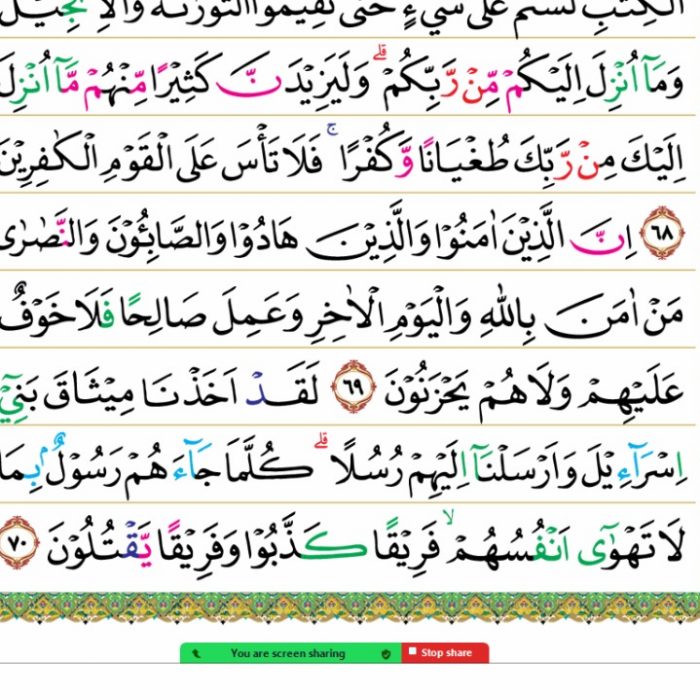 الْكِتٰبِ لَسْتُمْ عَلٰى شَيْءٍ حَتّٰى تُقِيمُوا التَّوْرٰىةَ وَالْاِنْجِيلَ
وَمَٓا اُنْزِلَ اِلَيْكُمْ مِنْ رَبِّكُمْۜ وَلَيَزِيدَنَّ كَثِيرًا مِنْهُمْ مَٓا اُنْزِلَ
اِلَيْكَ مِنْ رَبِّكَ طُغْيَانًا وَكُفْرًاۚ فَلَا تَأْسَ عَلَى الْقَوْمِ الْكَافِرِينَ
﴿٦٨﴾ اِنَّ الَّذِينَ اٰمَنُوا وَالَّذِينَ هَادُوا وَالصَّابِئُونَ وَالنَّصَارٰى
مَنْ اٰمَنَ بِاللّٰهِ وَالْيَوْمِ الْاٰخِرِ وَعَمِلَ صَالِحًا فَلَا خَوْفٌ
عَلَيْهِمْ وَلَا هُمْ يَحْزَنُونَ ﴿٦٩﴾ لَقَدْ اَخَذْنَا مِيثَاقَ بَنِٓي
اِسْرَٓاءِيلَ وَاَرْسَلْنَٓا اِلَيْهِمْ رُسُلًاۜ كُلَّمَا جَٓاءَهُمْ رَسُولٌ بِمَا
لَا تَهْوٰٓى اَنْفُسُهُمْۙ فَرِيقًا كَذَّبُوا وَفَرِيقًا يَقْتُلُونَ ﴿٧٠﴾
You are screen sharing Stop share